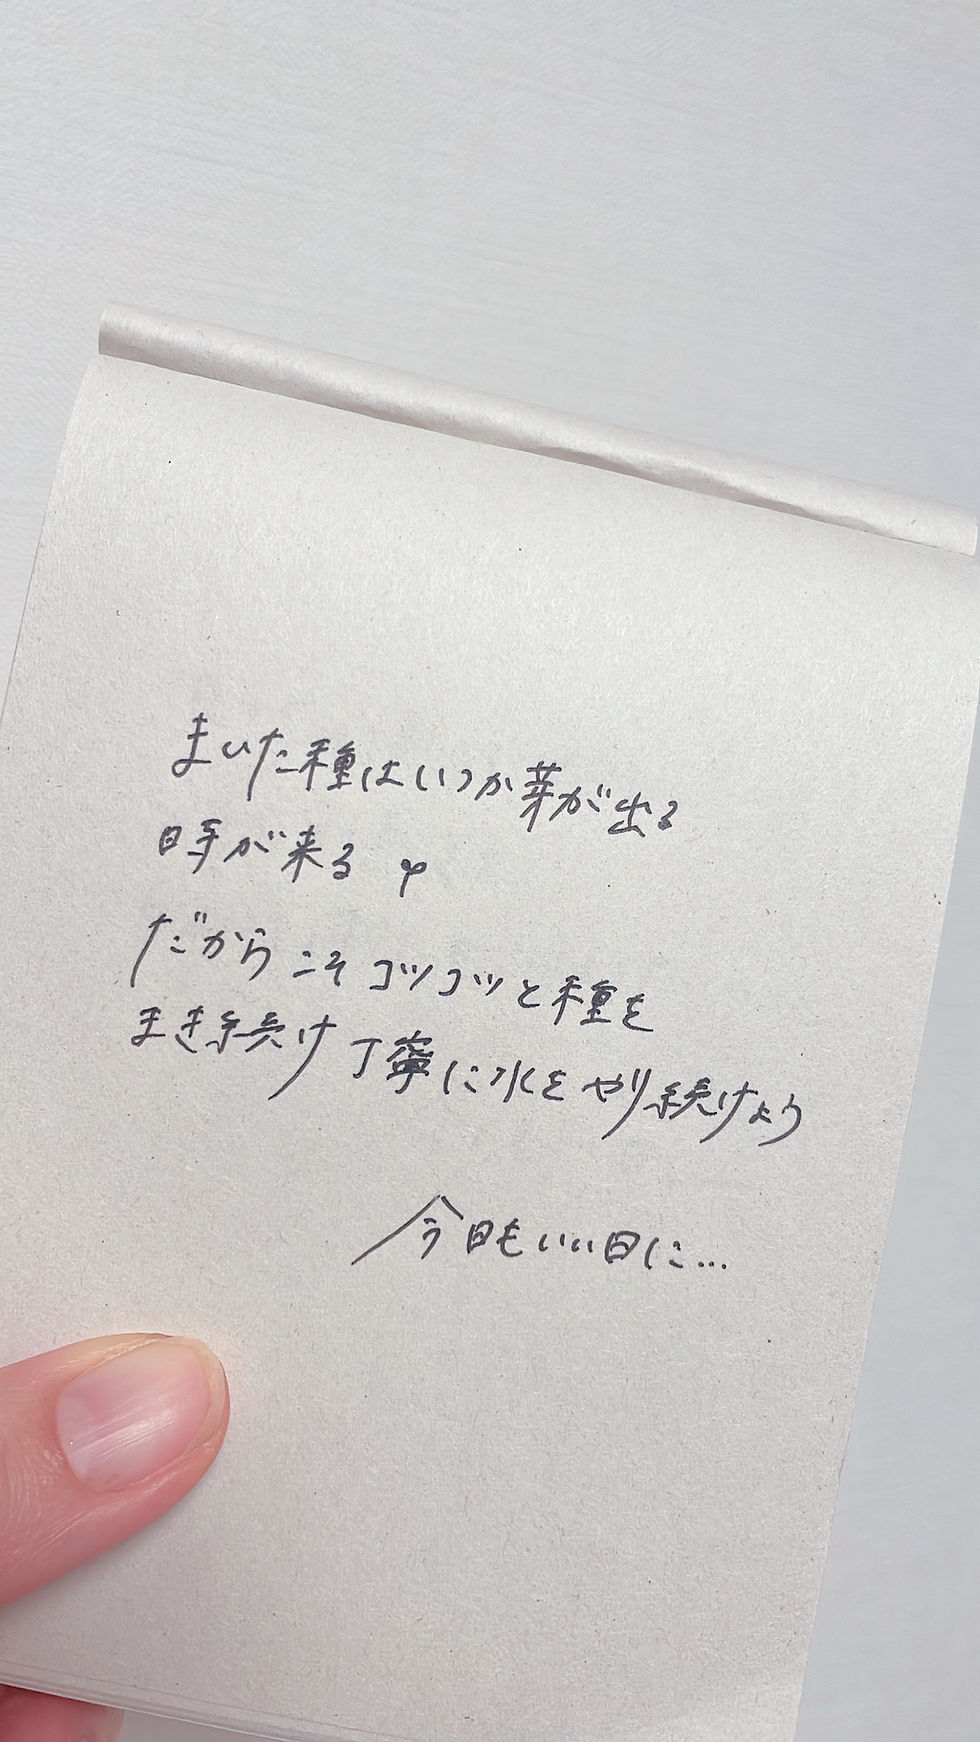 まいた種はいつか芽が出る
時が来る
だからこそコツコツと種を
まき続け丁寧に水をやり続けよう
今日もいい日に...